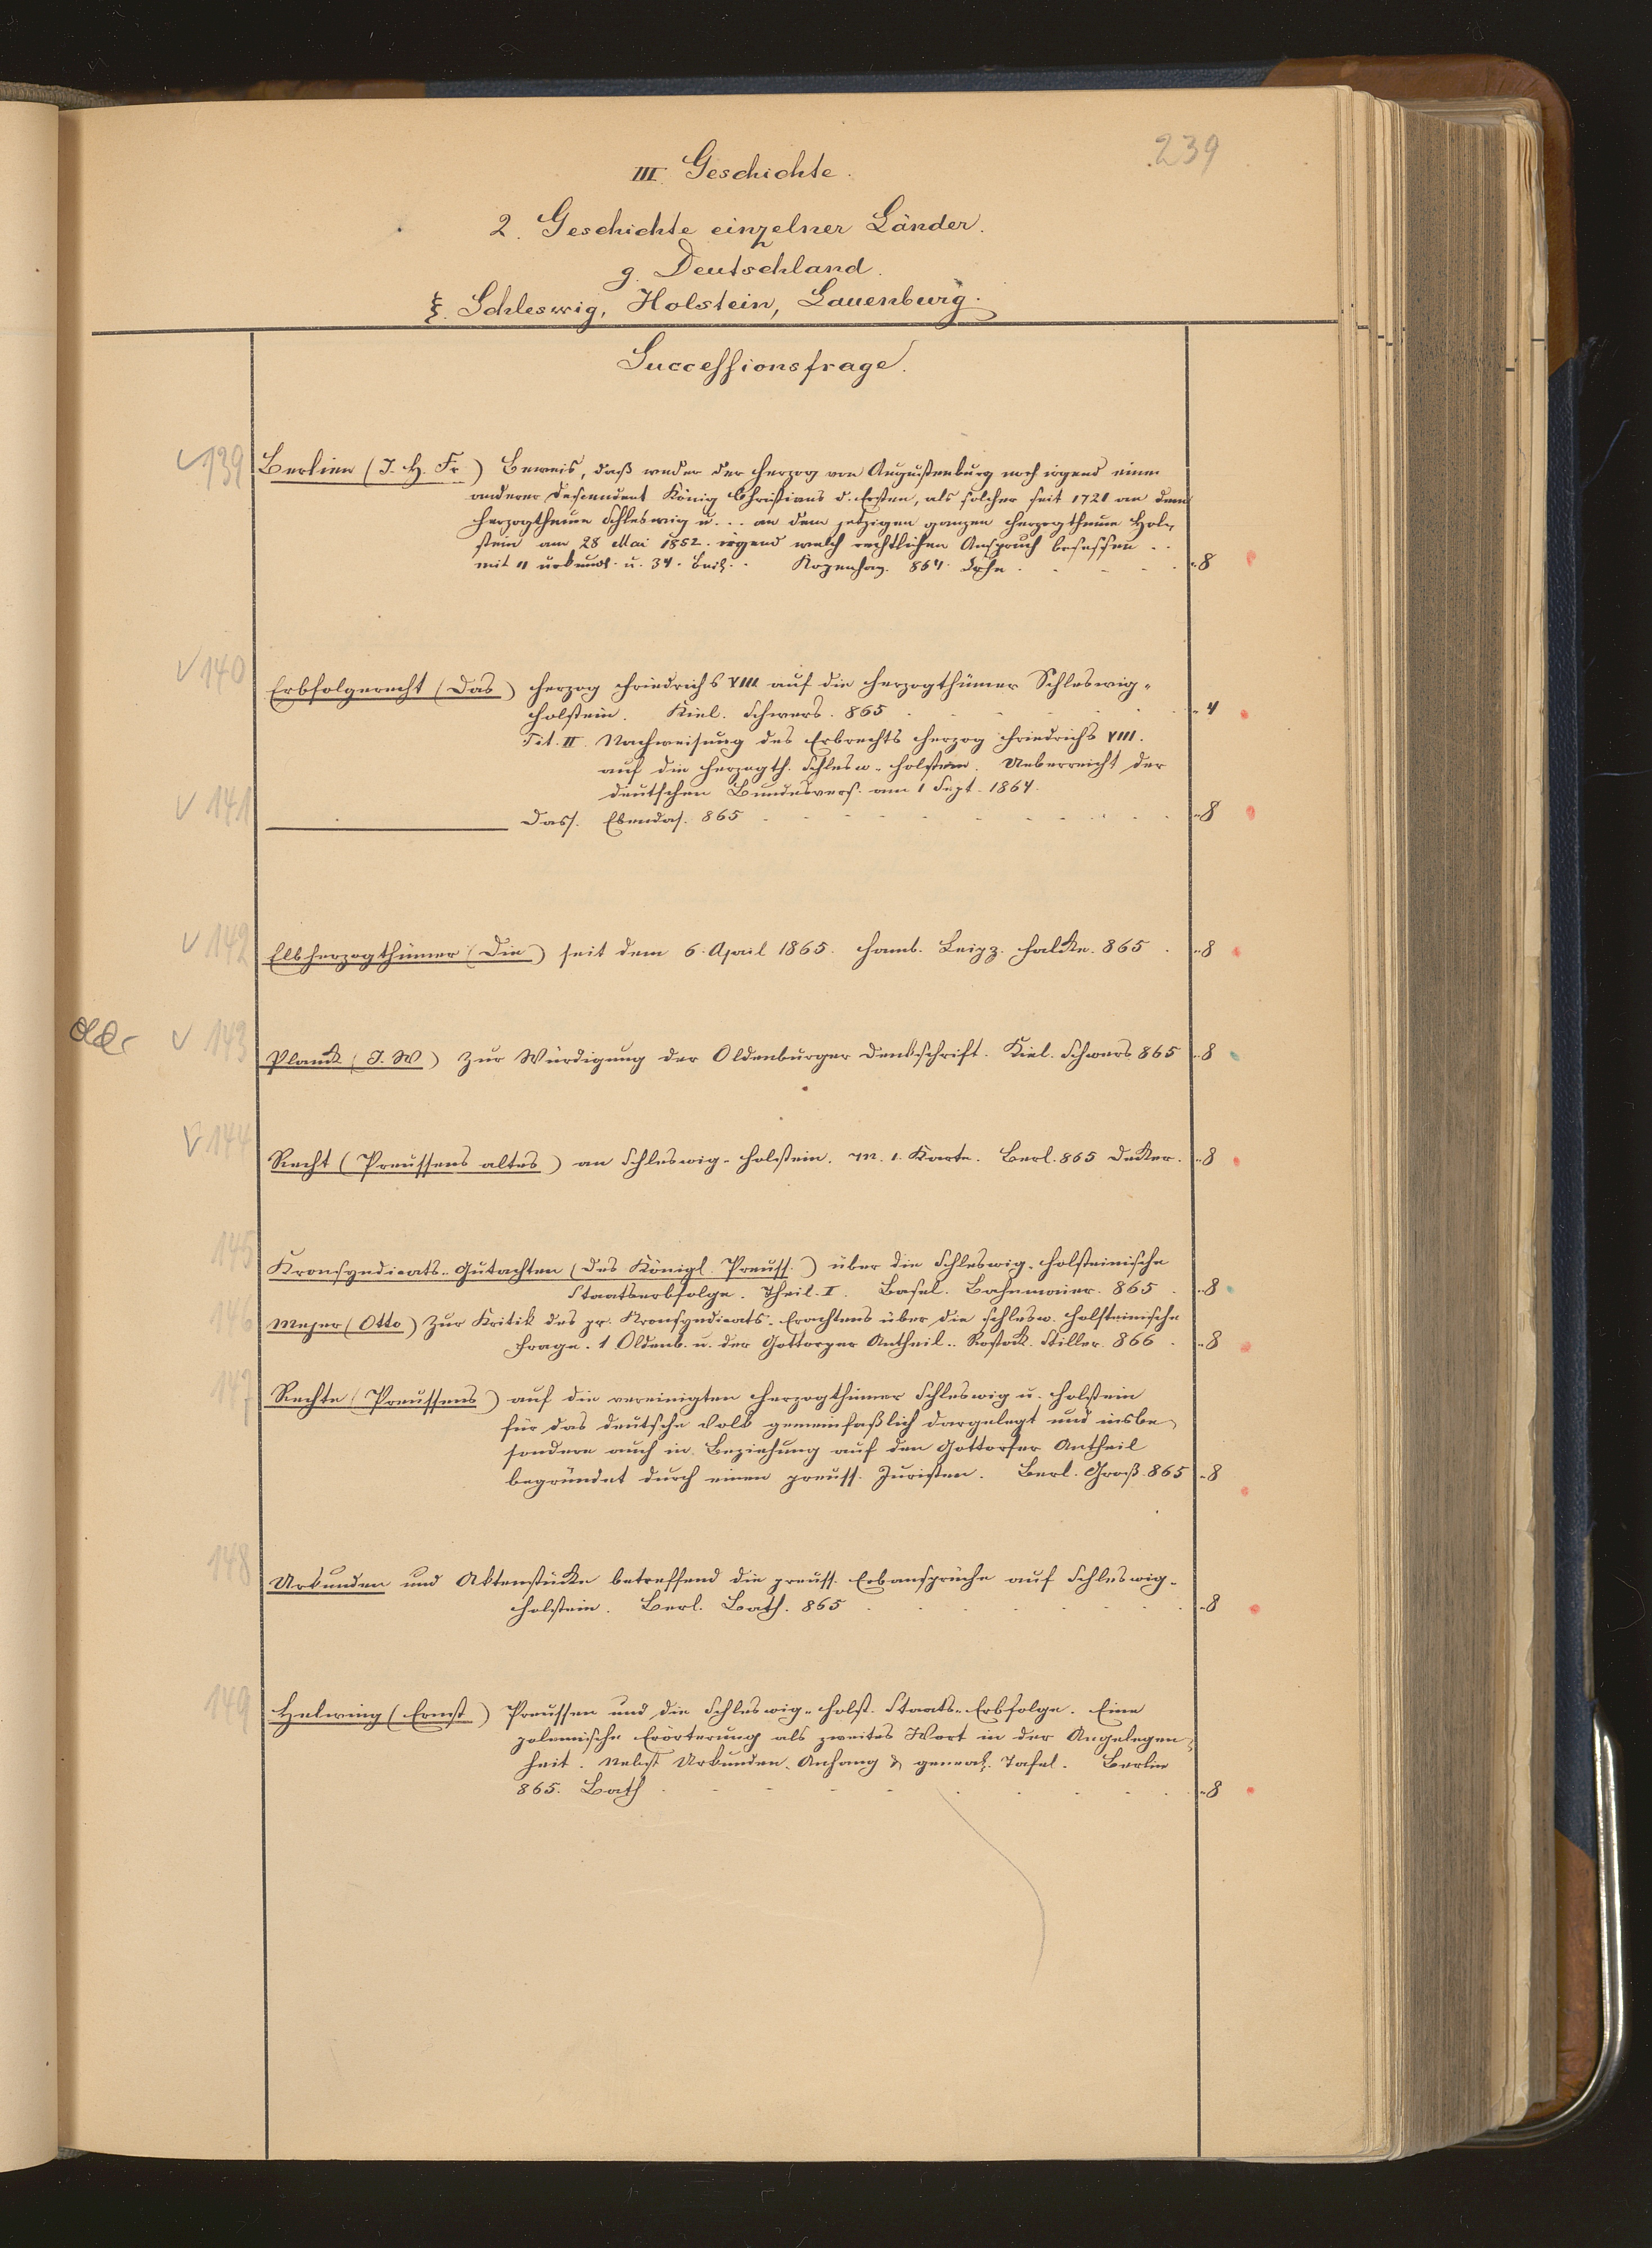 239
III. Geschichte.
2. Geschichte einzelner Länder.
g. Deutschland.
ξ. Schleswig, Holstein, Lauenburg.
Successionsfrage.
139 Berlien (J. H. Fr.) Beweis, daß weder der Herzog von Augustenburg noch irgend einer
anderer Descendent König Christians d. Ersten, als solcher seit 1721 an dem
Herzogthume Schleswig u. .. an dem jetzigen ganzen Herzogthume Hol-
stein am 28 Mai 1852. irgend welch rechtlichen Anspruch besessen ..
mit 11 Urkund. u. 34. Beil. Kopenhag. 864. 8
140 Erbfolgerecht (Das) Herzog Friedrichs VIII auf die Herzogthümer Schleswig-
Holstein. Kiel. Schwers. 865 4
Tit. II. Nachweisung des Erbrechts Herzog Friedrichs VIII.
auf die Herzogth. Schlesw-Holstein. Ueberreicht der
deutschen Bundesvers. am 1 Sept. 1864.
141 Dass. Ebendas. 865 8
142 Elbherzogthümer (Die) seit dem 6. April 1865. Hamb. Leipz. Falcke. 865 8
143 Planck (J. W) Zur Würdigung der Oldenburger Denkschrift. Kiel. Schwers 865 8
144 Recht (Preussens altes) an Schleswig-Holstein. M. 1. Karte. Berl. 865 Decker. 8
145 Kronsyndicats-Gutachten (Des Königl. Preuss.) über die Schleswig-Holsteinische
Staatserbfolge. Theil. I. Basel. Bahnmaier. 865 8
146 Mejer (Otto) Zur Kritik des pr. Kronsyndicats-Erachtens über die schlesw. holsteinische
Frage. 1 Oldenb. u. der Gottorper Antheil.. Rostock. Stiller. 866 8
147 Rechte (Preussens) auf die vereinigten Herzogthümer Schleswig u. Holstein
für das deutsche Volk gemeinfaßlich dargelegt und insbe-
sondere auch in Beziehung auf den Gottorfer Antheil
begründet durch einen preuss. Juristen. Berl. Groß. 865 8
148 Urkunden und Aktenstücke betreffend die preuss. Erbansprüche auf Schleswig-
Holstein. Berl. Bath. 865 8
149 Helwing (Ernst) Preussen und die Schleswig-Holst. Staats-Erbfolge. Eine
polemische Erörterung als zweites Wort in der Angelegen-
heit. Nebst Urkunden-Anhang & geneal. Tafel. Berlin
865. Bath 8